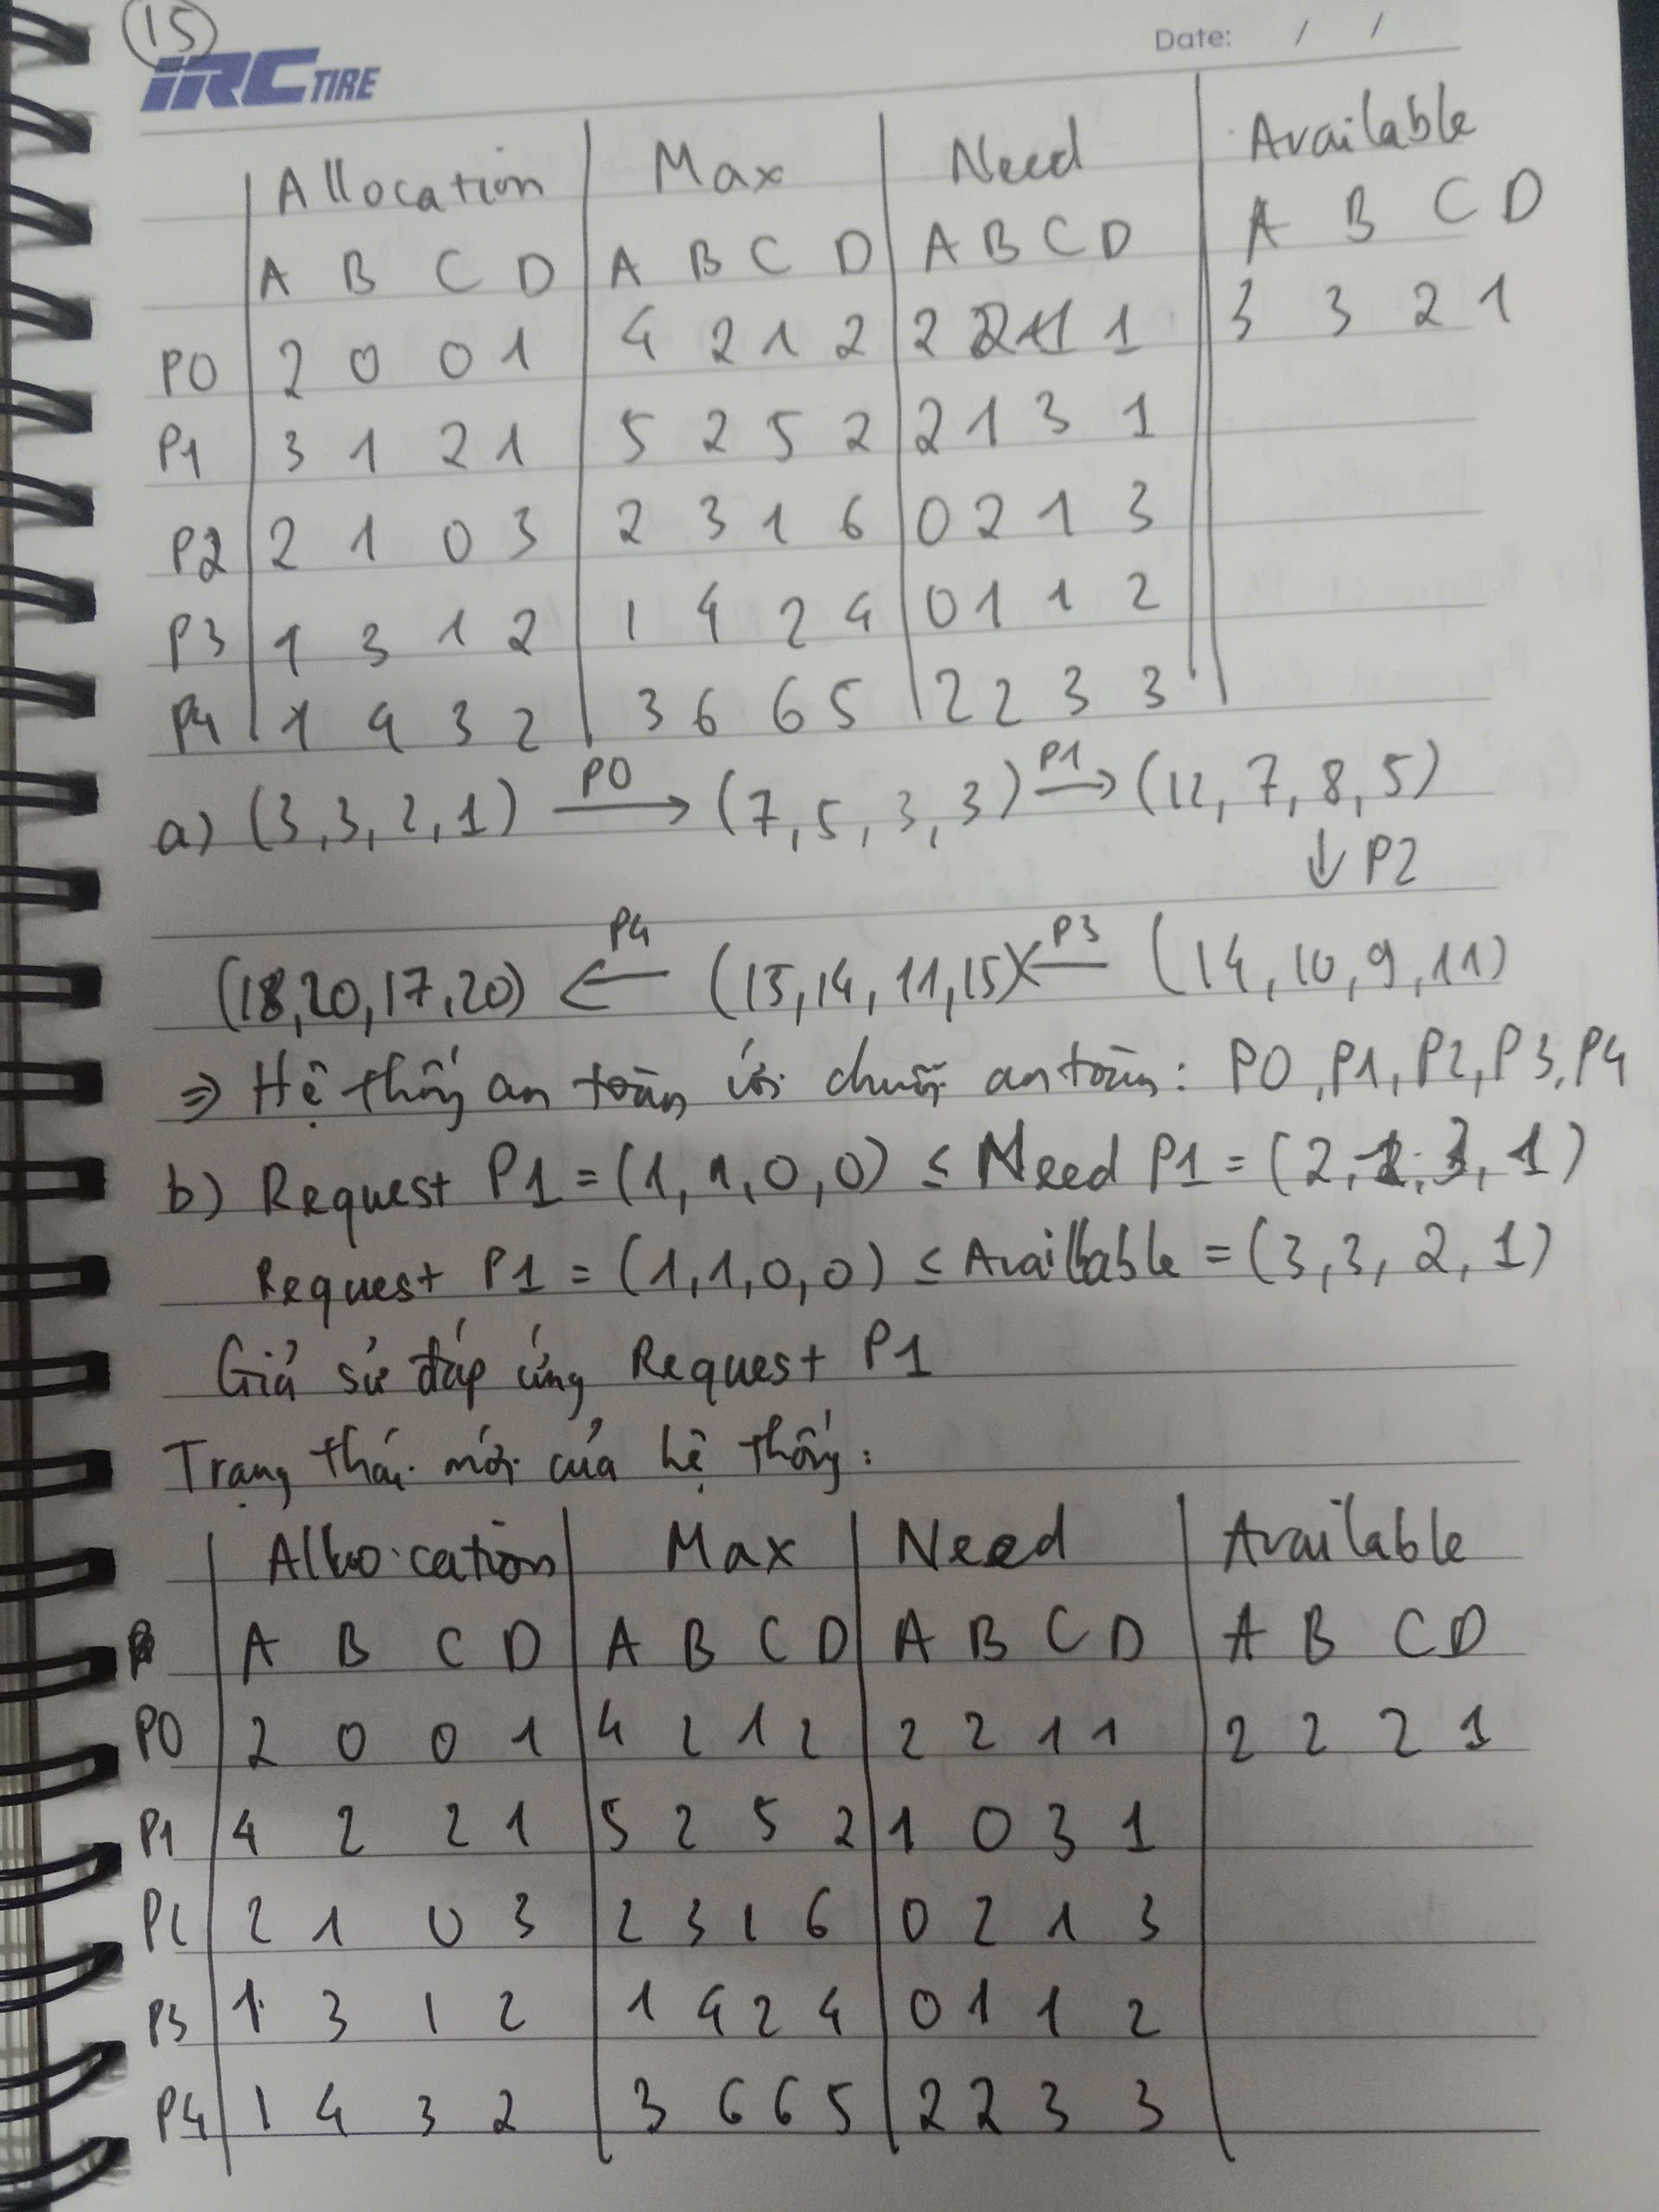 15
IRC TIRE Date: / /
Allocation Max Need Available
A B C D A B C D A B C D A B C D
P0 2 0 0 1 4 2 1 2 2 2 1 1 3 3 2 1
P1 3 1 2 1 5 2 5 2 2 1 3 1
P2 2 1 0 3 2 3 1 6 0 2 1 3
P3 1 3 1 2 1 4 2 4 0 1 1 2
P4 1 4 3 2 3 6 6 5 2 2 3 3
a) (3,3,2,1) P0 → (7,5,3,3) P1 → (12,7,8,5)
↓ P2
(18,20,17,20) ← P4 (15,14,11,15) ← P3 (14,10,9,11)
⇒ Hệ thống an toàn với chuỗi an toàn: P0,P1,P2,P3,P4
b) Request P1 = (1,1,0,0) ≤ Need P1 = (2,1,3,1)
Request P1 = (1,1,0,0) ≤ Available = (3,3,2,1)
Giả sử đáp ứng Request P1
Trạng thái mới của hệ thống:
Allocation Max Need Available
A B C D A B C D A B C D A B C D
P0 2 0 0 1 4 2 1 2 2 2 1 1 2 2 2 1
P1 4 2 2 1 5 2 5 2 1 0 3 1
P2 2 1 0 3 2 3 1 6 0 2 1 3
P3 1 3 1 2 1 4 2 4 0 1 1 2
P4 1 4 3 2 3 6 6 5 2 2 3 3